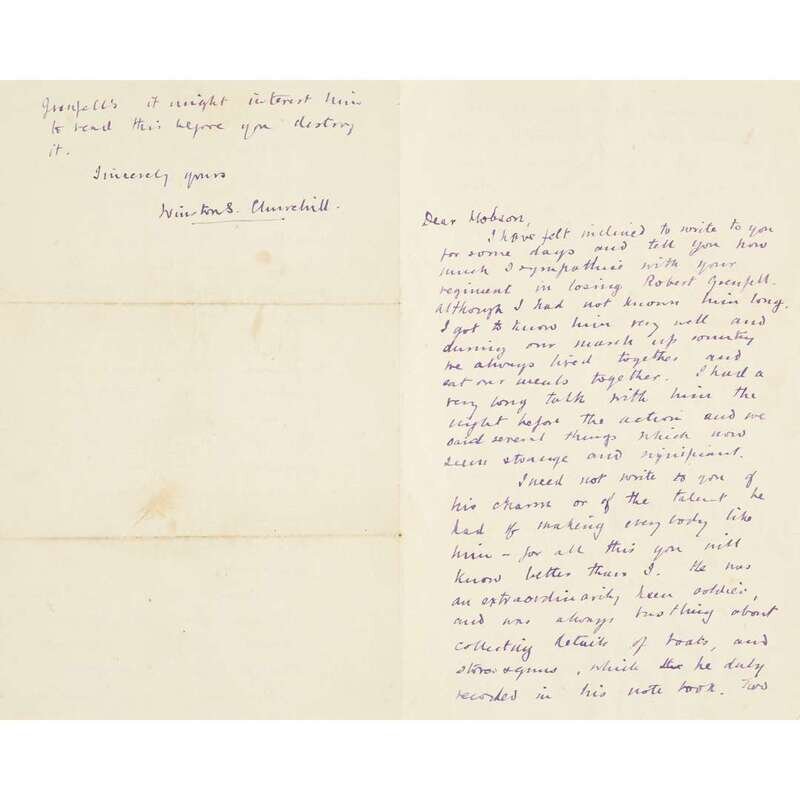 Grenfells it might interest him
to read this before you destroy
it.
Sincerely yours
Winston S. Churchill.
Dear Hobson,
I have felt inclined to write to you
for some days and tell you how
much I sympathise with your
regiment in losing Robert Grenfell.
Although I had not known him long.
I got to know him very well and
during our march up country
we always lived together and
eat our meals together. I had a
very long talk with him the
night before the action and we
said several things which now
seem strange and significant.
I need not write to you of
his charm or of the talent he
had of making everybody like
him – for all this you will
know better than I. He was
an extraordinarily keen soldier,
and was always bustling about
collecting details of boats, and
stores & guns, which he duly
recorded in his note book. Two